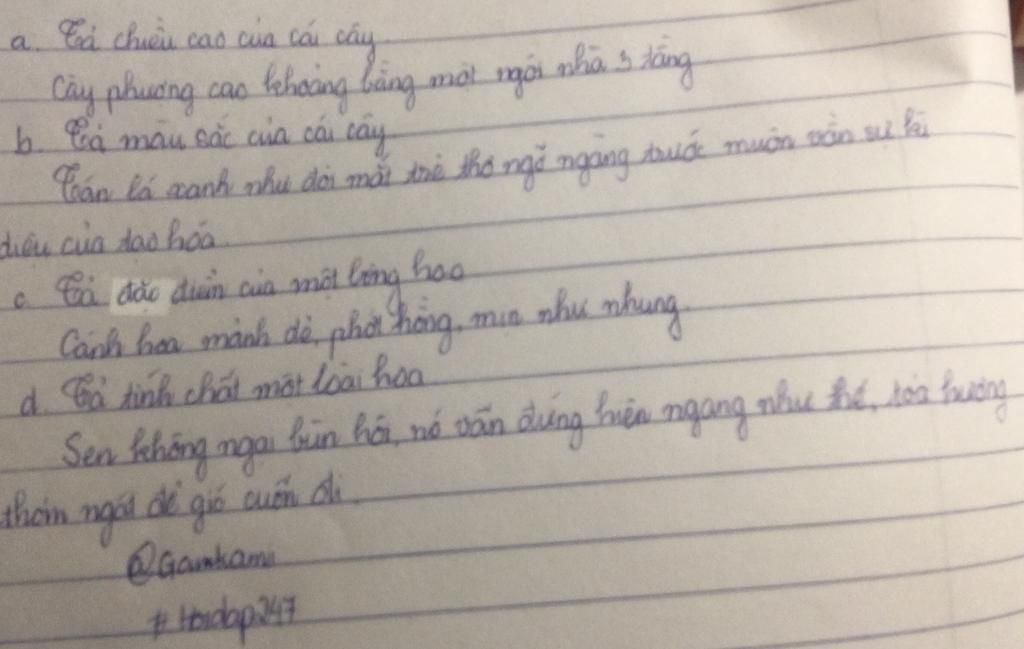 a. Tả chiều cao của cái cây
Cây phượng cao khoảng bằng một ngôi nhà 3 tầng
b. Tả màu sắc của cái cây
Tán lá xanh như đôi mắt trẻ thơ ngỡ ngàng trước muôn vàn sự kì
diệu của tạo hóa
c. Tả đặc điểm của một bông hoa
Cánh hoa mảnh dẻ, phớt hồng, mịn như nhung.
d. Tả tính chất một loài hoa
Sen không ngại bùn hôi, nó vẫn đứng hiên ngang như thế, tỏa hương
thơm ngát để gió cuốn đi.
# Hoidap247